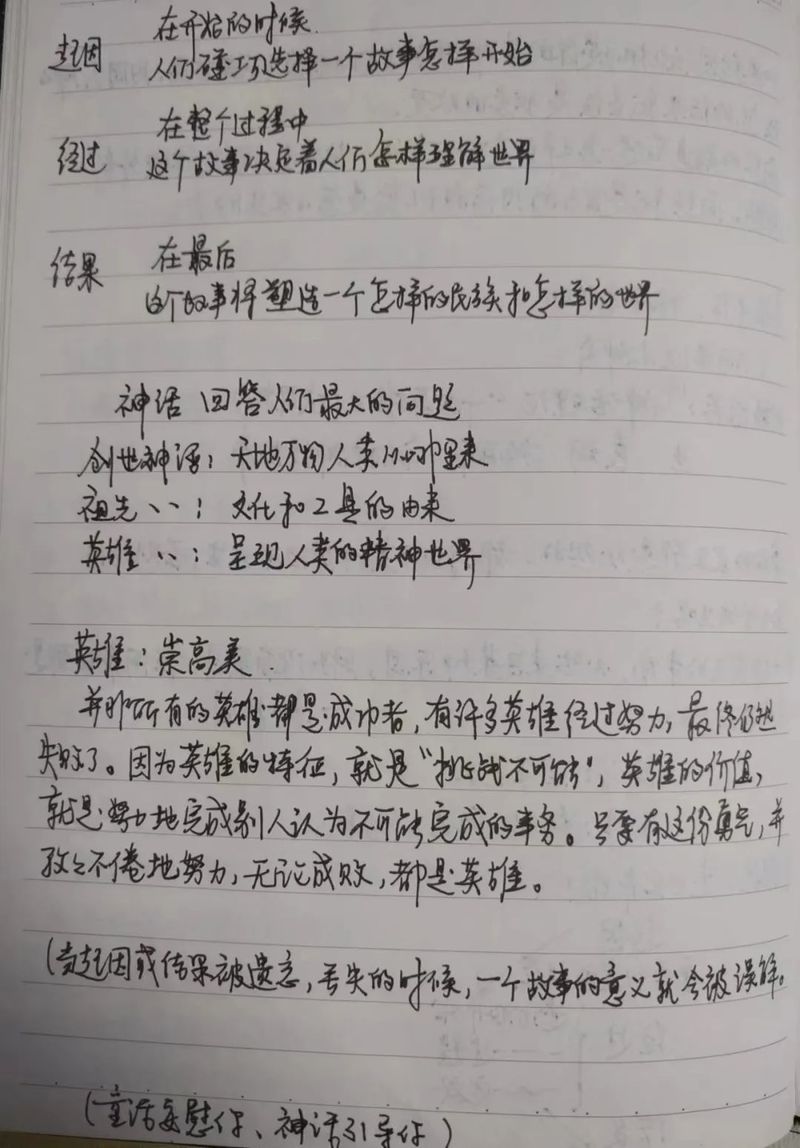 在开始的时候
起因 人们碰巧选择一个故事怎样开始
在整个过程中
经过 这个故事决定着人们怎样理解世界
在最后
结果
这个故事将塑造一个怎样的民族和怎样的世界
神话 回答人们最大的问题
创世神话：天地万物人类从哪里来
祖先〃：文化和工具的由来
英雄〃：呈现人类的精神世界
英雄：崇高美
并非所有的英雄都是成功者，有许多英雄经过努力，最终仍然
失败了。因为英雄的特征，就是“挑战不可能”，英雄的价值，
就是努力地完成别人认为不可能完成的事务。只要有这份勇气，并
孜々不倦地努力，无论成败，都是英雄。
(当起因或结果被遗忘，丢失的时候，一个故事的意义就会被误解。
(童话安慰你、神话引导你)